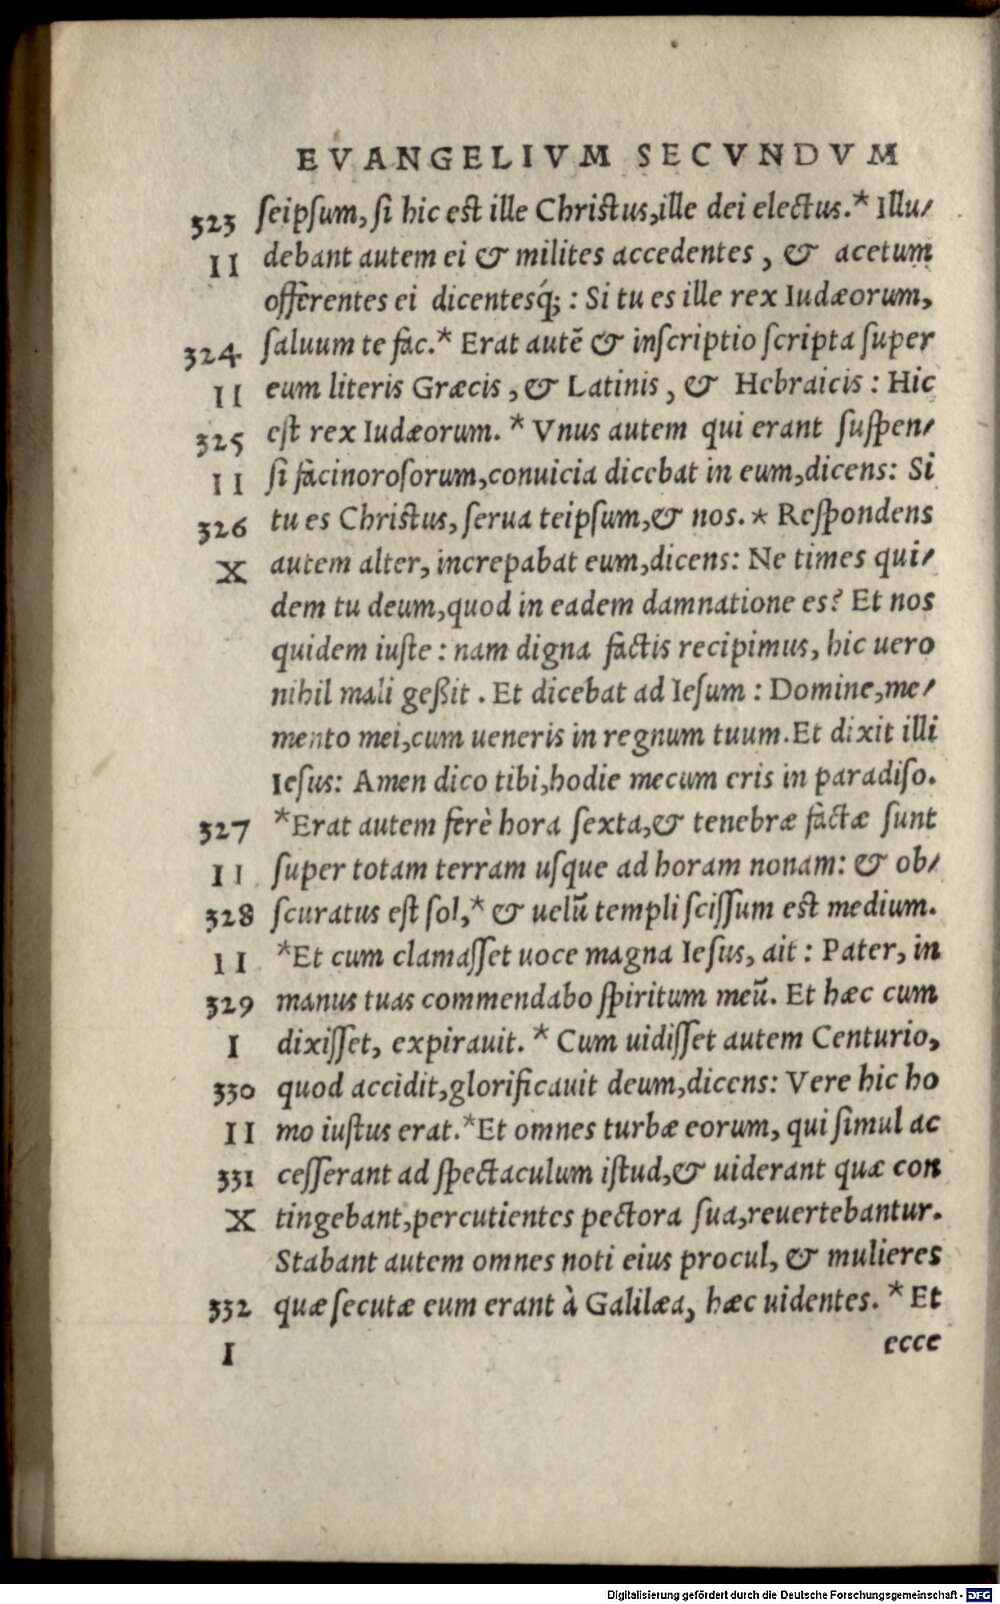 EVANGELIVM SECVNDVM
323 ſeipſum, ſi hic eſt ille Chriſtus,ille dei electus.* Illu/
II debant autem ei & milites accedentes , & acetum
offerentes ei dicentesq́; : Si tu es ille rex Iudæorum,
324 ſaluum te fac.* Erat autē & inſcriptio ſcripta ſuper
II eum literis Græcis , & Latinis , & Hebraicis : Hic
325 eſt rex Iudæorum. * Vnus autem qui erant ſuſpen/
II ſi facinoroſorum,conuicia dicebat in eum,dicens: Si
326 tu es Chriſtus, ſerua teipſum,& nos. * Reſpondens
X autem alter, increpabat eum,dicens: Ne times qui/
dem tu deum,quod in eadem damnatione es? Et nos
quidem iuſte : nam digna factis recipimus, hic uero
nihil mali geßit . Et dicebat ad Ieſum : Domine,me/
mento mei,cum ueneris in regnum tuum.Et dixit illi
Ieſus: Amen dico tibi,hodie mecum eris in paradiſo.
327 *Erat autem ferè hora ſexta,& tenebræ factæ ſunt
II ſuper totam terram uſque ad horam nonam: & ob/
328 ſcuratus eſt ſol,* & uelū templi ſciſſum eſt medium.
II *Et cum clamaſſet uoce magna Ieſus, ait : Pater, in
329 manus tuas commendabo ſpiritum meū. Et hæc cum
I dixiſſet, expirauit. * Cum uidiſſet autem Centurio,
330 quod accidit,glorificauit deum,dicens: Vere hic ho
II mo iuſtus erat.*Et omnes turbæ eorum, qui ſimul ac
331 ceſſerant ad ſpectaculum iſtud,& uiderant quæ con
X tingebant,percutientes pectora ſua,reuertebantur.
Stabant autem omnes noti eius procul, & mulieres
332 quæ ſecutæ eum erant à Galilæa, hæc uidentes. * Et
I ecce
Digitalisierung gefördert durch die Deutsche Forschungsgemeinschaft - DFG